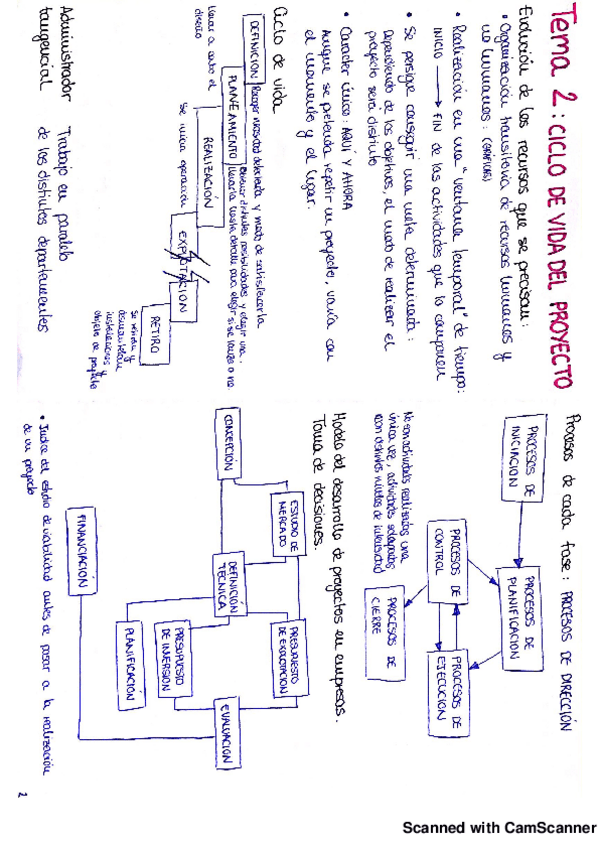 Tema 2: CICLO DE VIDA DEL PROYECTO
Evolución de los recursos que se precisan:
• Organización transitoria de recursos humanos y
no humanos:
• Realización en una "ventana temporal" de tiempo:
INICIO → FIN de las actividades que lo componen
• Se persigue conseguir una meta determinada:
Dependiendo de los objetivos, el modo de realizar el
proyecto será distinto
• Carácter único: AQUÍ Y AHORA
Aunque se pretenda repetir un proyecto, varía con
el momento y el lugar.
Ciclo de vida
DEFINICIÓN
Recoger necesidad detectada y modo de satisfacerla
PLANTEAMIENTO
Evaluar distintas posibilidades y elegir una.
Llevarla hasta detalle para elegir si se lanza o no
Llevar a cabo el
diseño
REALIZACIÓN
Se inicia operación
EXPLOTACIÓN
RETIRO
Se retiran y
desmantelan
instalaciones y
objeto de proyecto
Administrador Trabajo en paralelo
tangencial de los distintos departamentos
Procesos de cada fase: PROCESOS DE DIRECCIÓN
PROCESOS DE
INICIACIÓN
PROCESOS DE
PLANIFICACIÓN
PROCESOS DE
CONTROL
PROCESOS DE
EJECUCIÓN
PROCESOS DE
CIERRE
No son actividades realizadas una
única vez, actividades solapadas
con distintos niveles de intensidad
Modelo del desarrollo de proyectos en empresas.
Toma de decisiones.
CONCEPCIÓN
ESTUDIO DE
MERCADO
DEFINICIÓN
TÉCNICA
PRESUPUESTO
DE EXPLOTACIÓN
PRESUPUESTO
DE INVERSIÓN
PLANIFICACIÓN
EVALUACIÓN
FINANCIACIÓN
• Índice del estudio de viabilidad antes de pasar a la realización
de un proyecto
2
Scanned with CamScanner